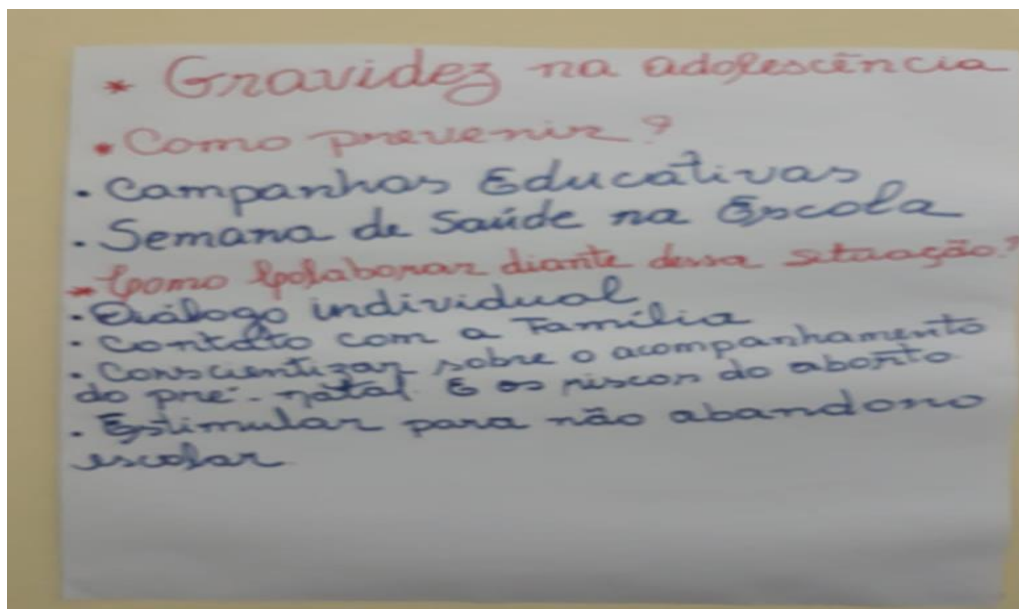 * Gravidez na adolescência
• Como prevenir?
• Campanhas Educativas
• Semana de Saúde na Escola
* Como Colaborar diante dessa situação?
• Diálogo individual
• Contato com a Família
• Conscientizar sobre o acompanhamento
do pré-natal E os riscos do aborto
• Estimular para não abandono
escolar